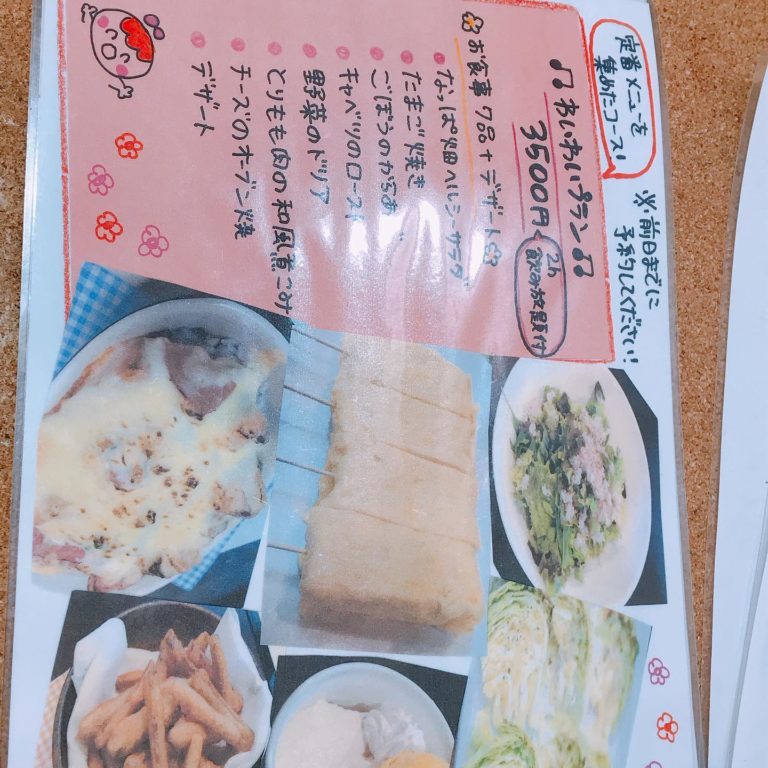 定番メニューを
集めたコース!
※前日までに
予約してください!
♫わいわいプラン♫
3500円
2h
飲み放題付
お食事7品+デザート
なっぱ畑ヘルシーサラダ
たまご焼き
ごぼうのからあげ
キャベツのロースト
野菜のドリア
とりもも肉の和風煮こみ
チーズのオーブン焼
デザート